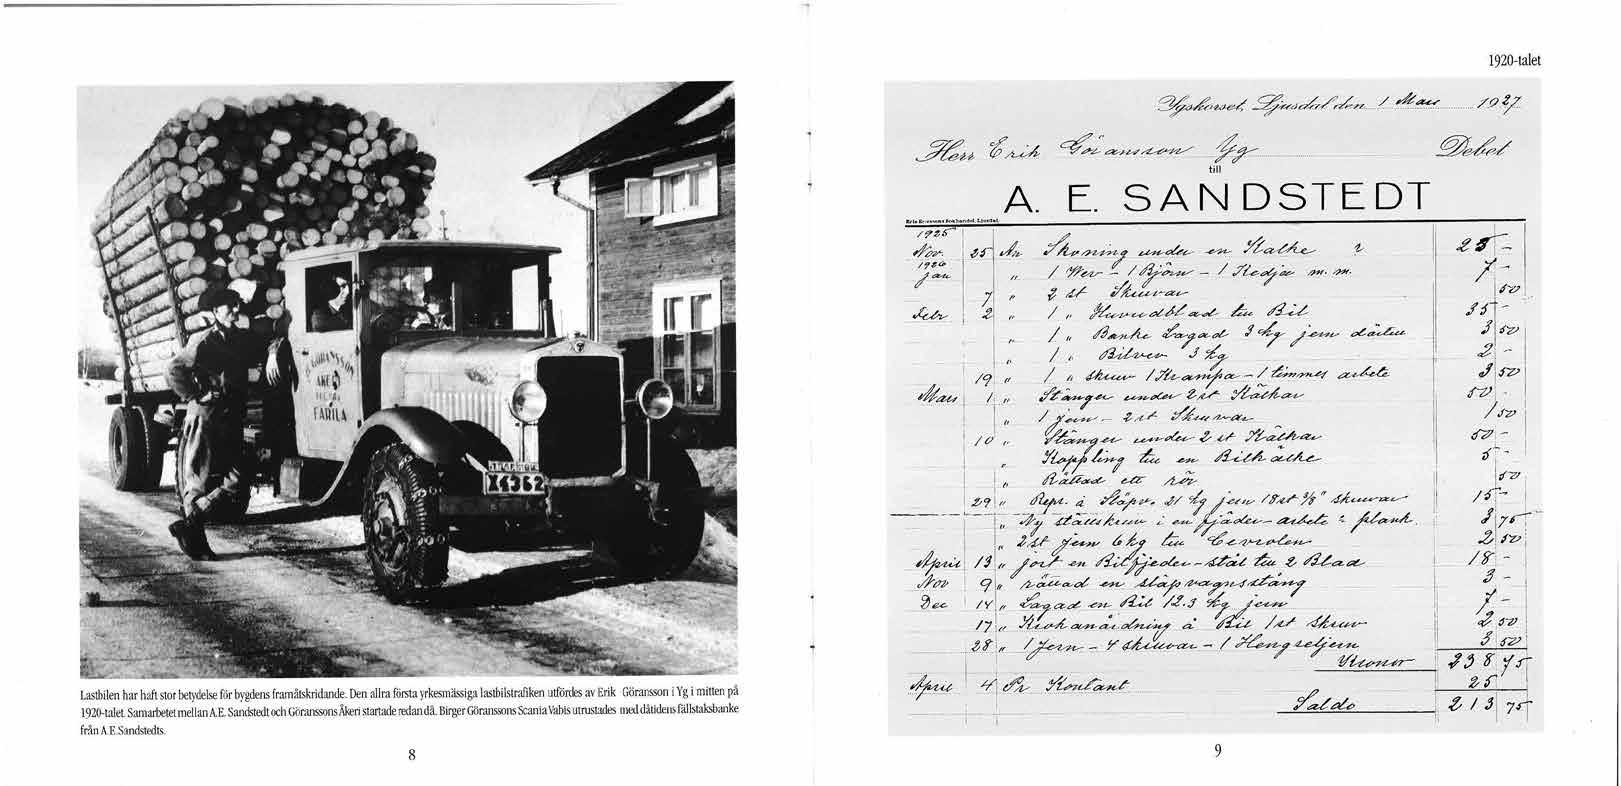 GÖRANSSON
ÅKERI
FÄRILA
X4362
Lastbilen har haft stor betydelse för bygdens framåtskridande. Den allra första yrkesmässiga lastbilstrafiken utfördes av Erik Göransson i Yg i mitten på
1920-talet. Samarbetet mellan A.E. Sandstedt och Göranssons Åkeri startade redan då. Birger Göranssons Scania Vabis utrustades med dåtidens fällstaksbanke
från A.E Sandstedts.
8
1920-talet
Ygskorset, Ljusdal den 1 Mars 1927
Herr Erik Göransson Yg Debet
till
A. E. SANDSTEDT
Eric Ericssons Bokhandel, Ljusdal
1925
Nov. 25 An Skoning under en Kälke 28 -
1926
Jan " 1 Vev - 1 Björn - 1 Kedja m. m. 7 -
7 " 2 st Skruvar 50
Febr 2 " 1 " Huvudblad till Bil 35 -
" 1 " Banke Lagad 3 kg jern därtill 3 50
" 1 " Bilvev 3 kg 2 -
19 " 1 " skruv 1 Krampa - 1 timmes arbete 3 50
Mars 1 " Stänger under 2 st Kälkar 50 -
" 1 jern - 2 st Skruvar 1 50
10 " Stänger under 2 st Kälkar 50 -
" Koppling till en Bilkälke 5 -
" Rättad ett rör 50
29 " Repr. å Släpv. 21 kg jern 18 st 3/8" skruvar 15 -
" Ny ställskruv i en fjäder - arbete plank. 3 75
" 2 st jern 6 kg till Cevrolen 2 50
April 13 " jort en Bilfjeder - stål till 2 Blad 18 -
Nov 9 " rättad en släpvagnsstång 3 -
Dec 14 " Lagad en Bil 12.3 kg jern 7 -
17 " Krokanordning å Bil 1 st skruv 2 50
28 " 1 Jern - 4 skruvar - 1 Hengseljern 3 50
Kronor 238 75
April 4 Pr Kontant 25
Saldo 213 75
9